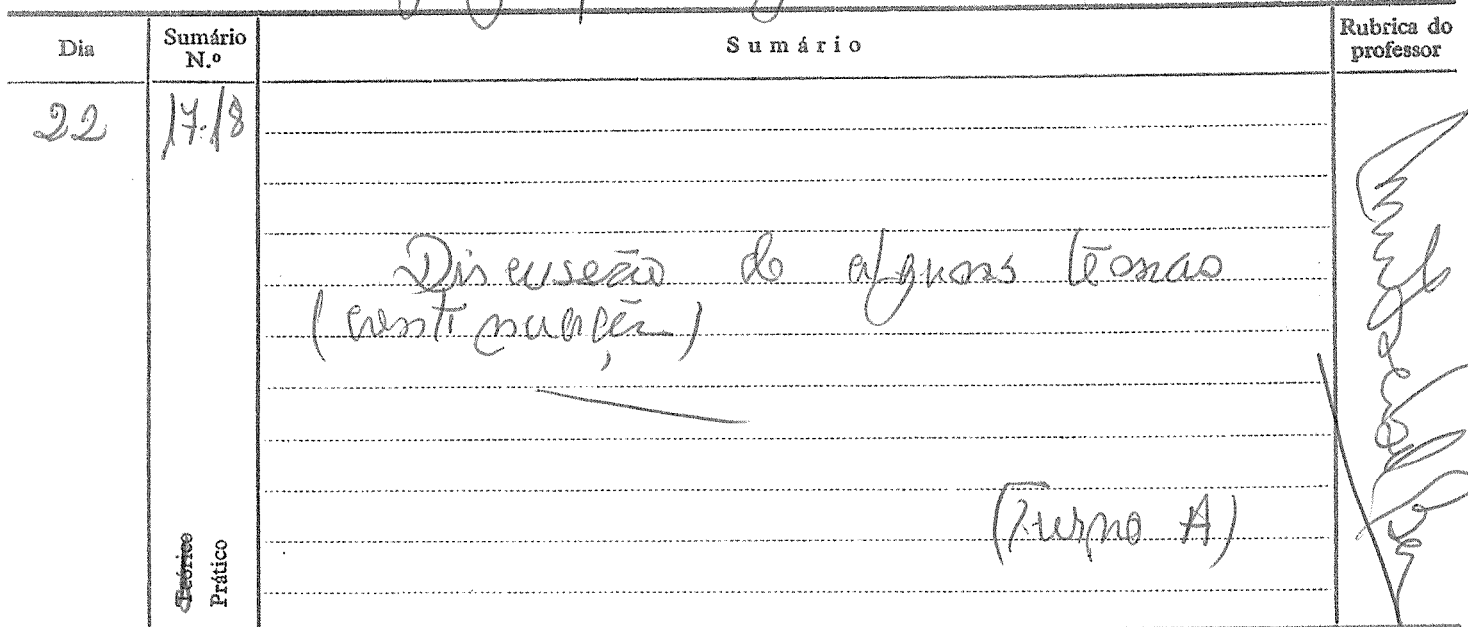 Dia
Sumário N.º
Sumário
Rubrica do professor
22
17-18
Discussão de alguns temas
(continuação)
(Turno A)
Teórico
Prático